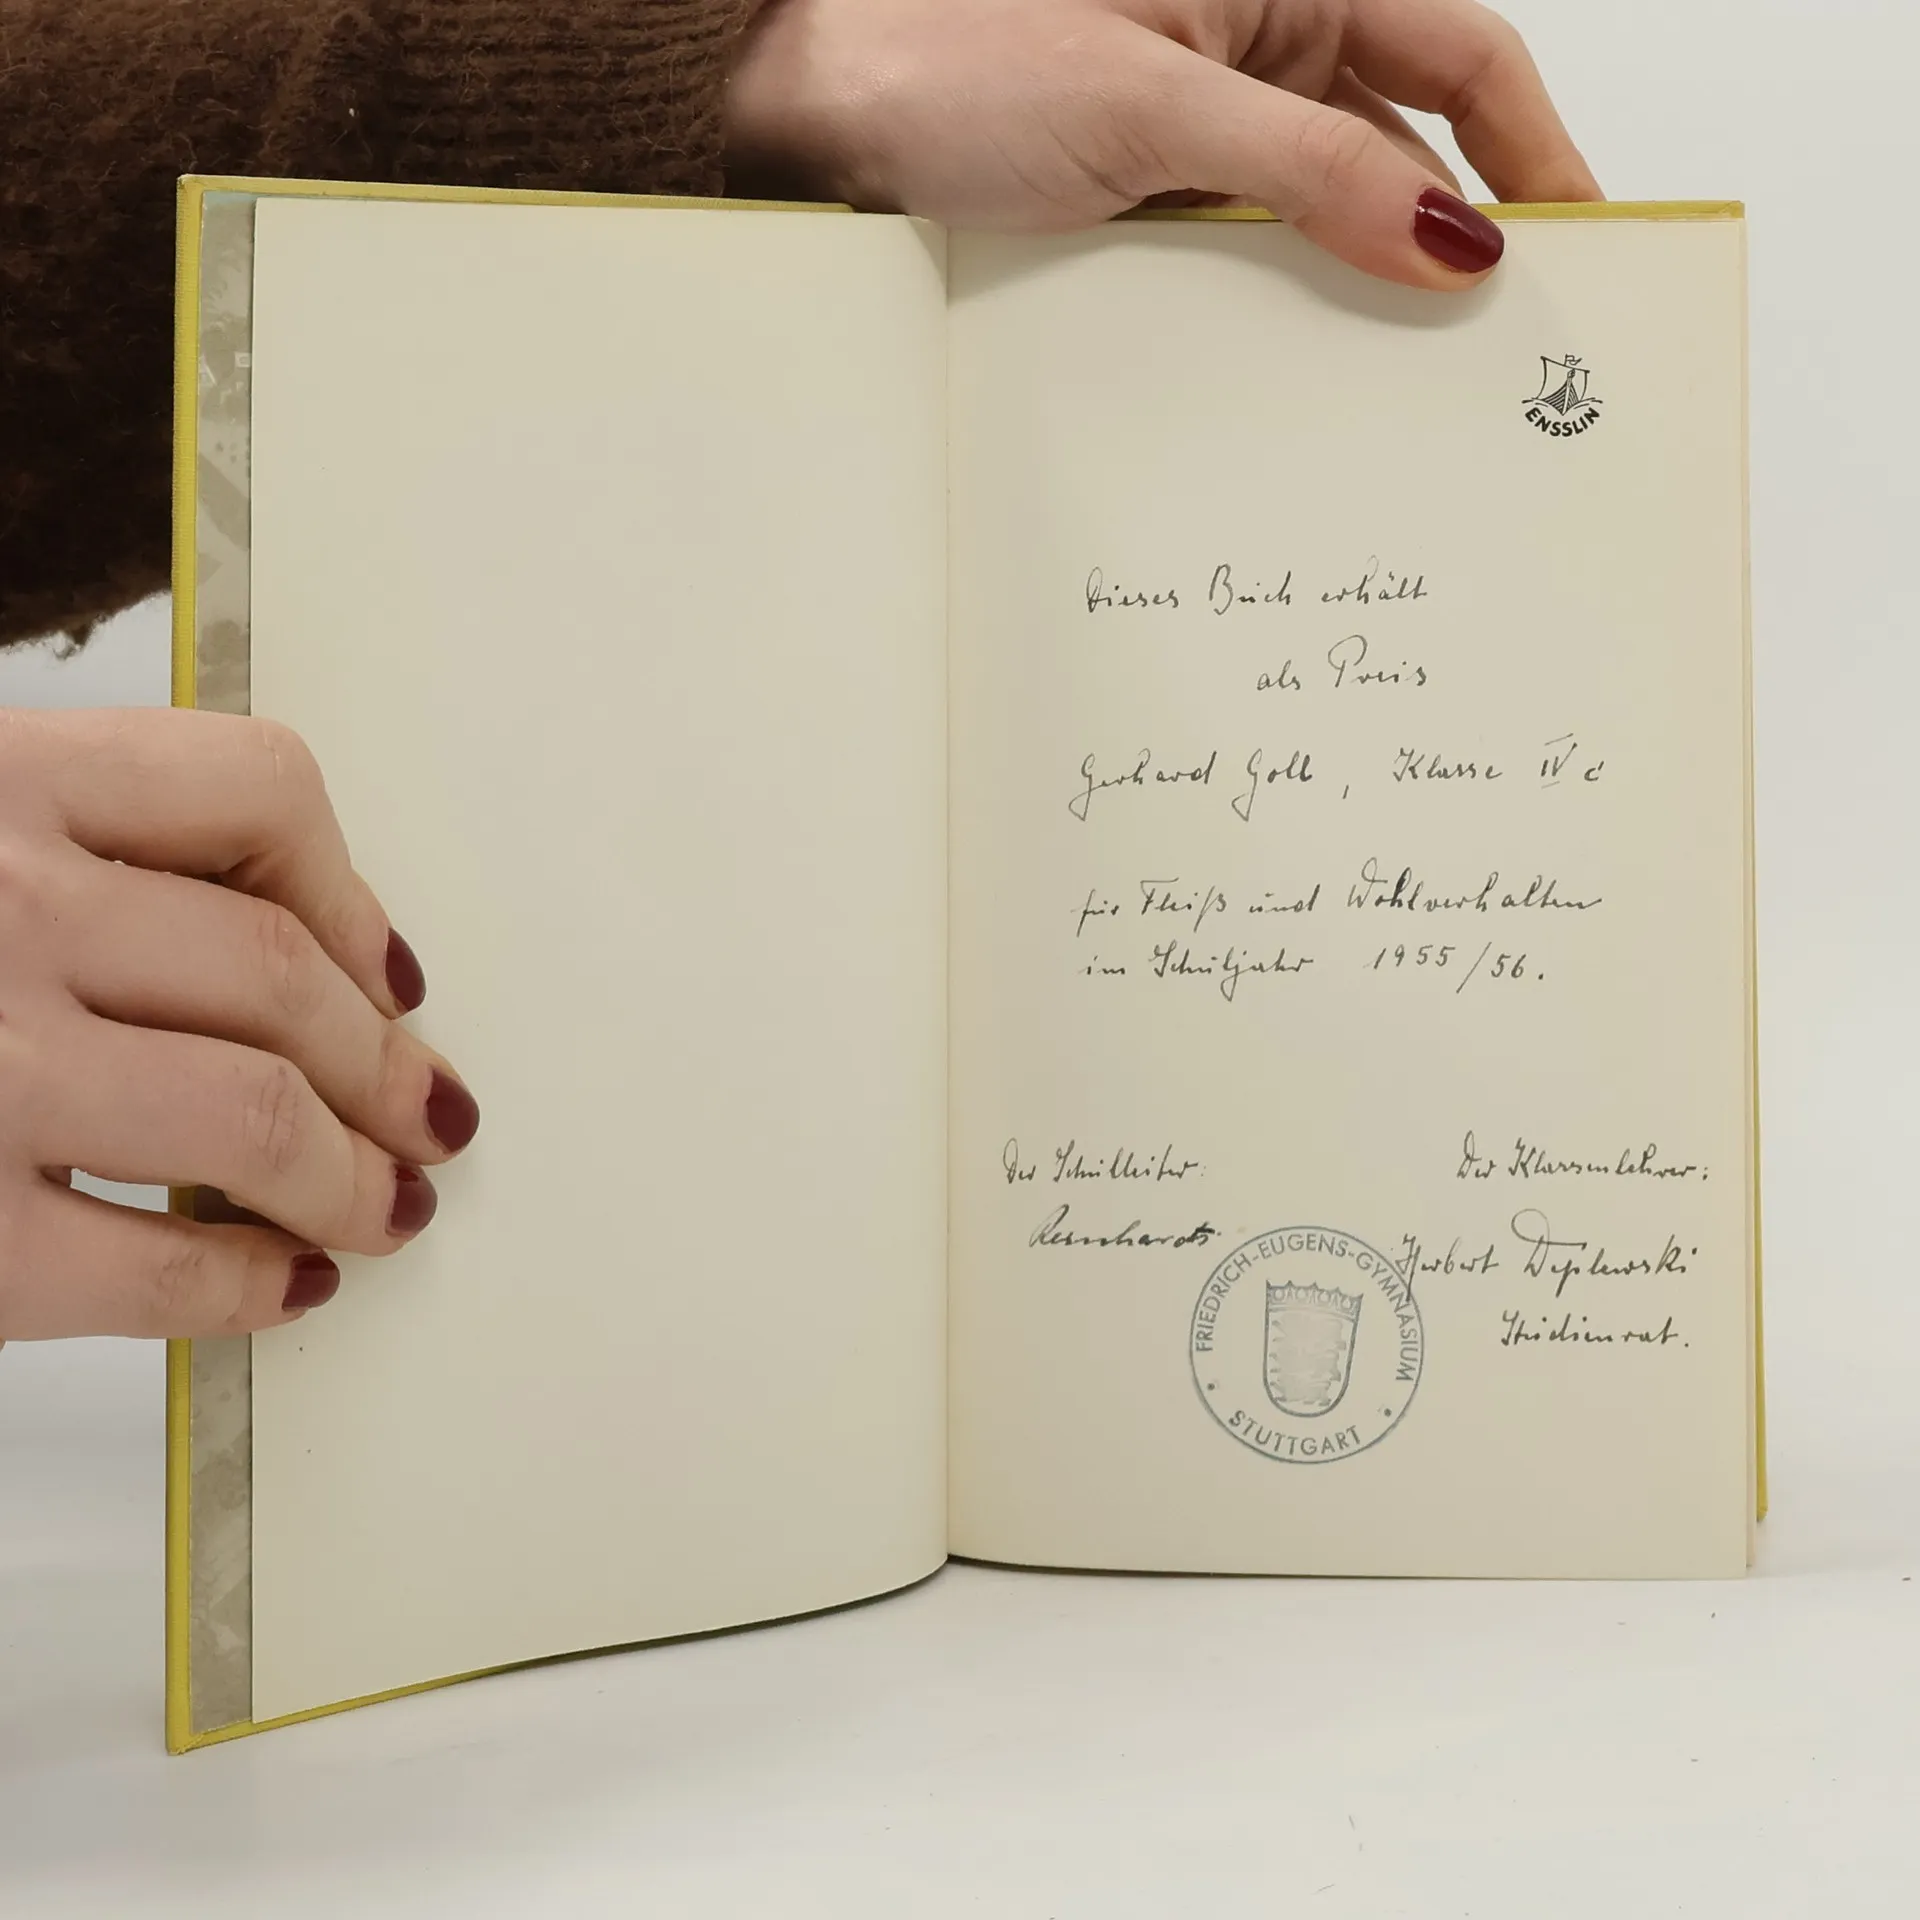 ENSSLIN
Dieses Buch erhält
als Preis
Gerhard Goll, Klasse IV c
für Fleiß und Wohlverhalten
im Schuljahr 1955/56.
Der Schulleiter:
Der Klassenlehrer:
Herbert
Studienrat.
FRIEDRICH-EUGENS-GYMNASIUM
STUTTGART